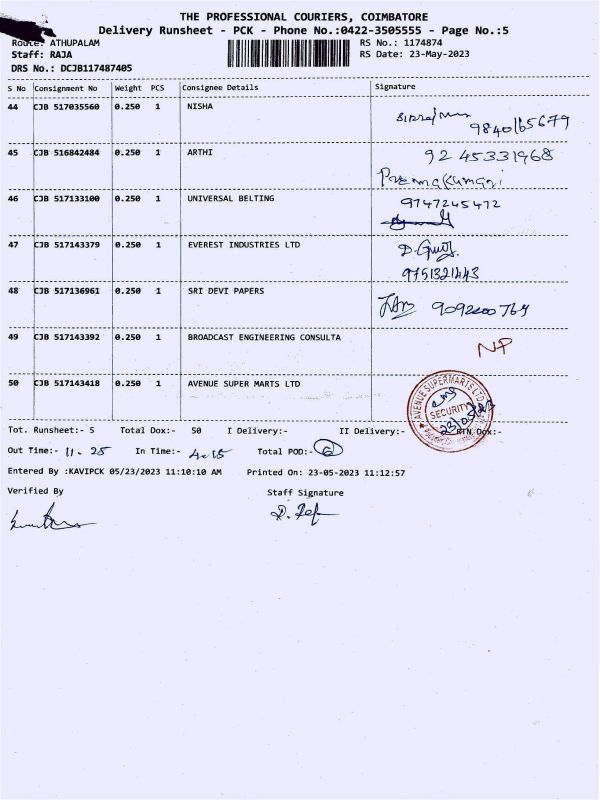 THE PROFESSIONAL COURIERS, COIMBATORE
Delivery Runsheet - PCK - Phone No.:0422-3505555 - Page No.:5
Route: ATHUPALAM RS No.: 1174874
Staff: RAJA RS Date: 23-May-2023
DRS No.: DCJB117487405
S No Consignment No Weight PCS Consignee Details Signature
44 CJB 517035560 0.250 1 NISHA
9840165679
45 CJB 516842484 0.250 1 ARTHI 9245331968
Premakumari
46 CJB 517133100 0.250 1 UNIVERSAL BELTING 9747245472
47 CJB 517143379 0.250 1 EVEREST INDUSTRIES LTD
48 CJB 517136961 0.250 1 SRI DEVI PAPERS
49 CJB 517143392 0.250 1 BROADCAST ENGINEERING CONSULTA NP
50 CJB 517143418 0.250 1 AVENUE SUPER MARTS LTD
AVENUE SUPERMARTS LTD
SECURITY
Tot. Runsheet:- S Total Dox:- 50 I Delivery:- II Delivery:- RTN Dox:-
Out Time:- 11.25 In Time:- 4.15 Total POD:- 6
Entered By :KAVIPCK 05/23/2023 11:10:10 AM Printed On: 23-05-2023 11:12:57
Verified By Staff Signature